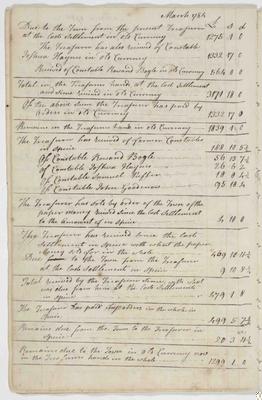 March 1784
Due to the Town from the present Treasurer
at the last Settlement in old Currency 1275 4 0
The Treasurer has also received of Constable
Joshua Haynes in old Currency 1332 17 0
Received of Constable Reward Bogle in old Currency
Total in the Treasurers hands at the last Settlement
and Since received in old Currency 3171 18 0
Of the above Sum the Treasurer has paid by
Orders in old Currency 1332 17 0
Remains in the Treasurers hands in old Currency 1839 1 0
The Treasurer has received of former Constables
in Specie
Of Constable Reward Bogle 56 13
Of Constable Joshua Haynes
Of Constable Samuel
Of Constable John Goodenow
The Treasurer has Sold by order of the Town of the
paper money received Since the last Settlement
to the amount of in Specie 4 10 0
The Treasurer has received Since the last
Settlement in Specie with what the paper
Money Sold for in the whole 469 10
Due to the Town from the Treasurer
at the last Settlement in Specie 9 10
Total received by the Treasurer Since, with that
was due from him at the last Settlement
in Specie 479 1 8
The Treasurer has paid by orders in the whole in
Specie 499 5
Remains due from the Town to the Treasurer in
Specie 20 3
Remains due to the Town in old Currency now
in the Treasurers hands in the whole 1299 1 0